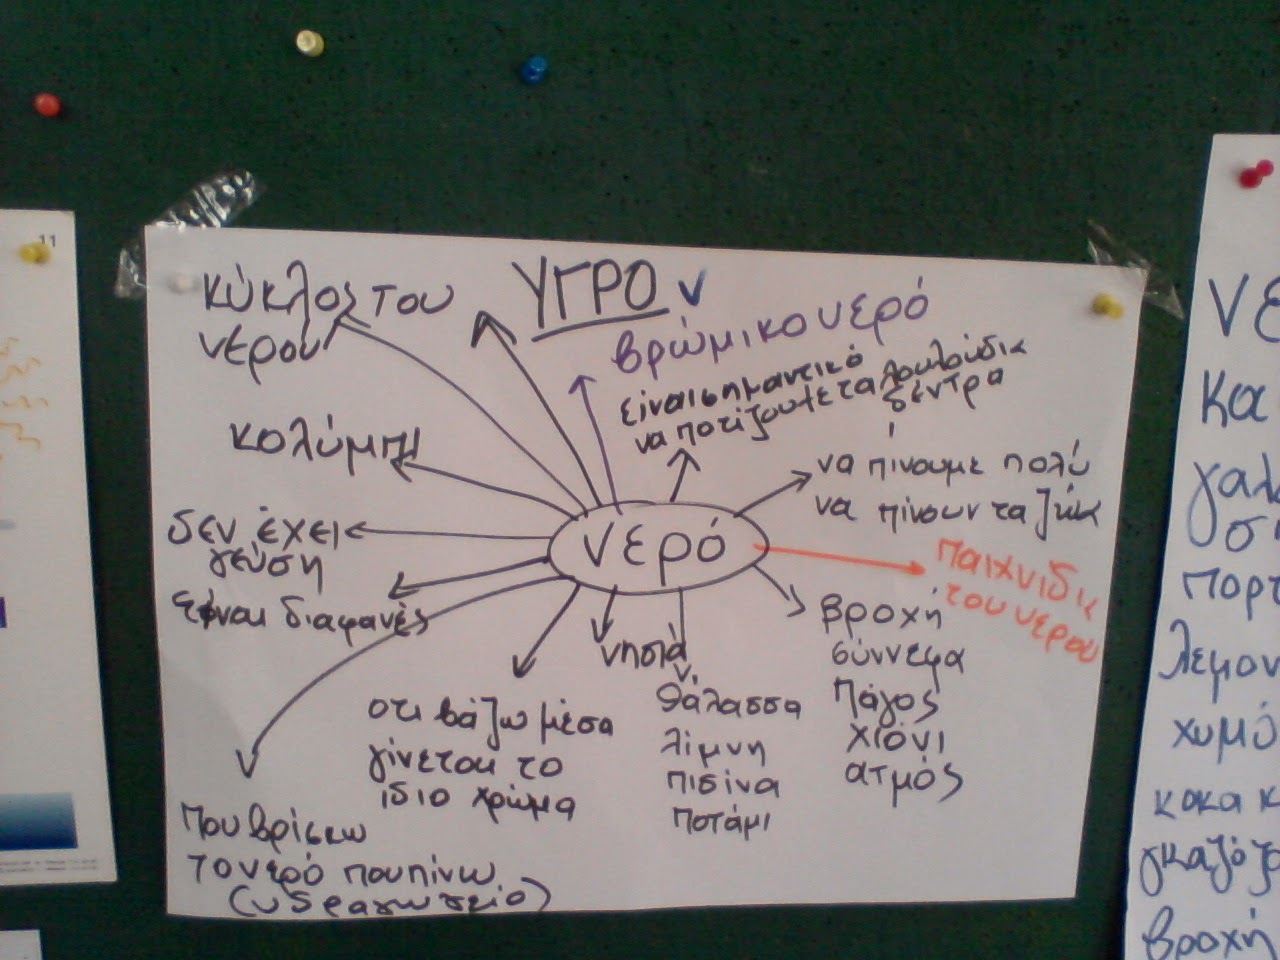 11
κύκλος του
νερού
ΥΓΡΟ
βρώμικο νερό
είναι σημαντικό
να ποτίζουμε τα λουλούδια
δέντρα
κολύμπι
να πίνουμε πολύ
να πίνουν τα ζώα
δεν έχει
γεύση
νερό
παιχνίδια
του νερού
είναι διαφανές
νησιά
βροχή
σύννεφα
πάγος
χιόνι
ατμός
θάλασσα
λίμνη
πισίνα
ποτάμι
οτι βάζω μέσα
γίνεται το
ίδιο χρώμα
Που βρίσκω
το νερό που πίνω
(υδραγωγείο)
ΝΕ
και
γαλ
πορτ
λεμον
χυμό
κοκα κ
γκαζόζα
βροχή